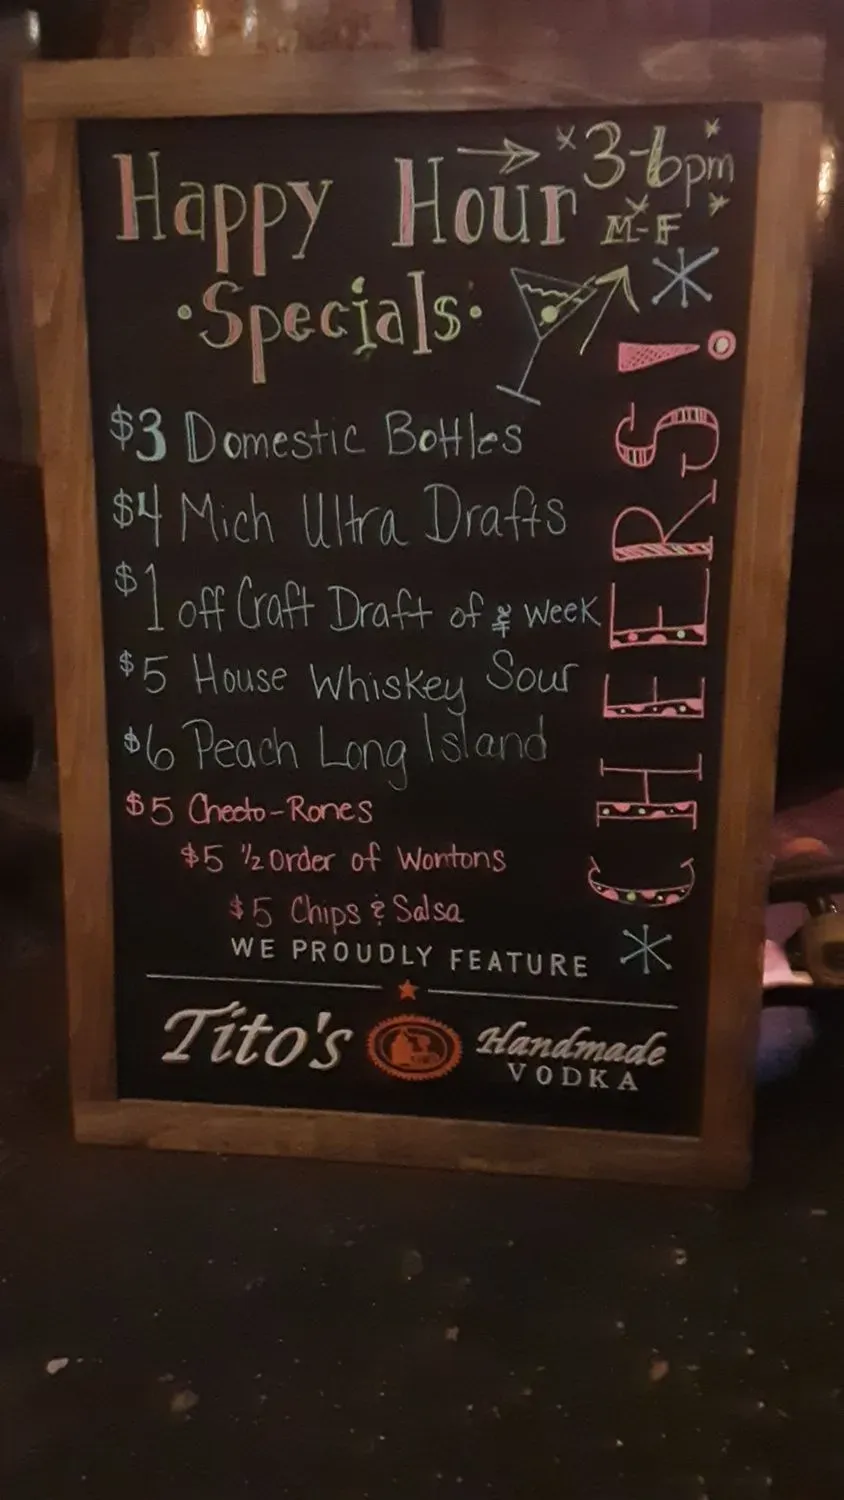 Happy Hour
3-6pm
M-F
•Specials•
$3 Domestic Bottles
$4 Mich Ultra Drafts
$1 off Craft Draft of the week
$5 House Whiskey Sour
$6 Peach Long Island
$5 Cheeto-Rones
$5 1/2 Order of Wontons
$5 Chips & Salsa
CHEERS!
WE PROUDLY FEATURE
Tito's Handmade
VODKA